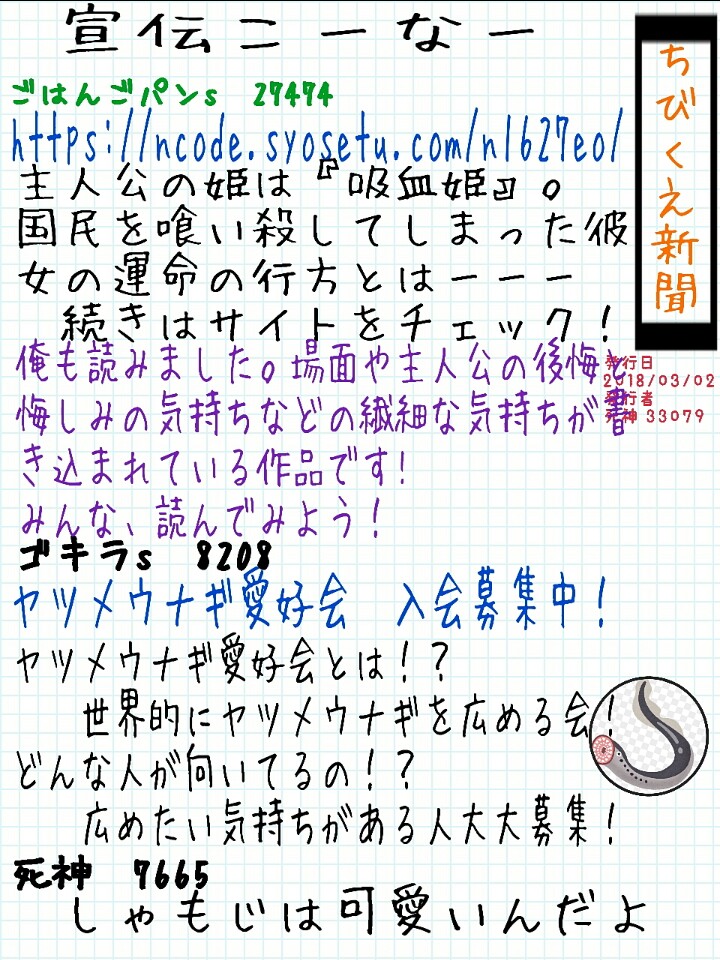 宣伝こーなー
ちびくえ新聞
ごはんごパンs 27474
https://ncode.syosetu.com/n1627eo/
主人公の姫は『吸血姫』。
国民を喰い殺してしまった彼
女の運命の行方とはーーー
続きはサイトをチェック！
俺も読みました。場面や主人公の後悔と
悔しみの気持ちなどの繊細な気持ちが書
き込まれている作品です！
みんな、読んでみよう！
発行日
2018/03/02
発行者
死神 33079
ゴキラs 8208
ヤツメウナギ愛好会 入会募集中！
ヤツメウナギ愛好会とは！？
世界的にヤツメウナギを広める会！
どんな人が向いてるの！？
広めたい気持ちがある人大大募集！
死神 7665
しゃもじは可愛いんだよ